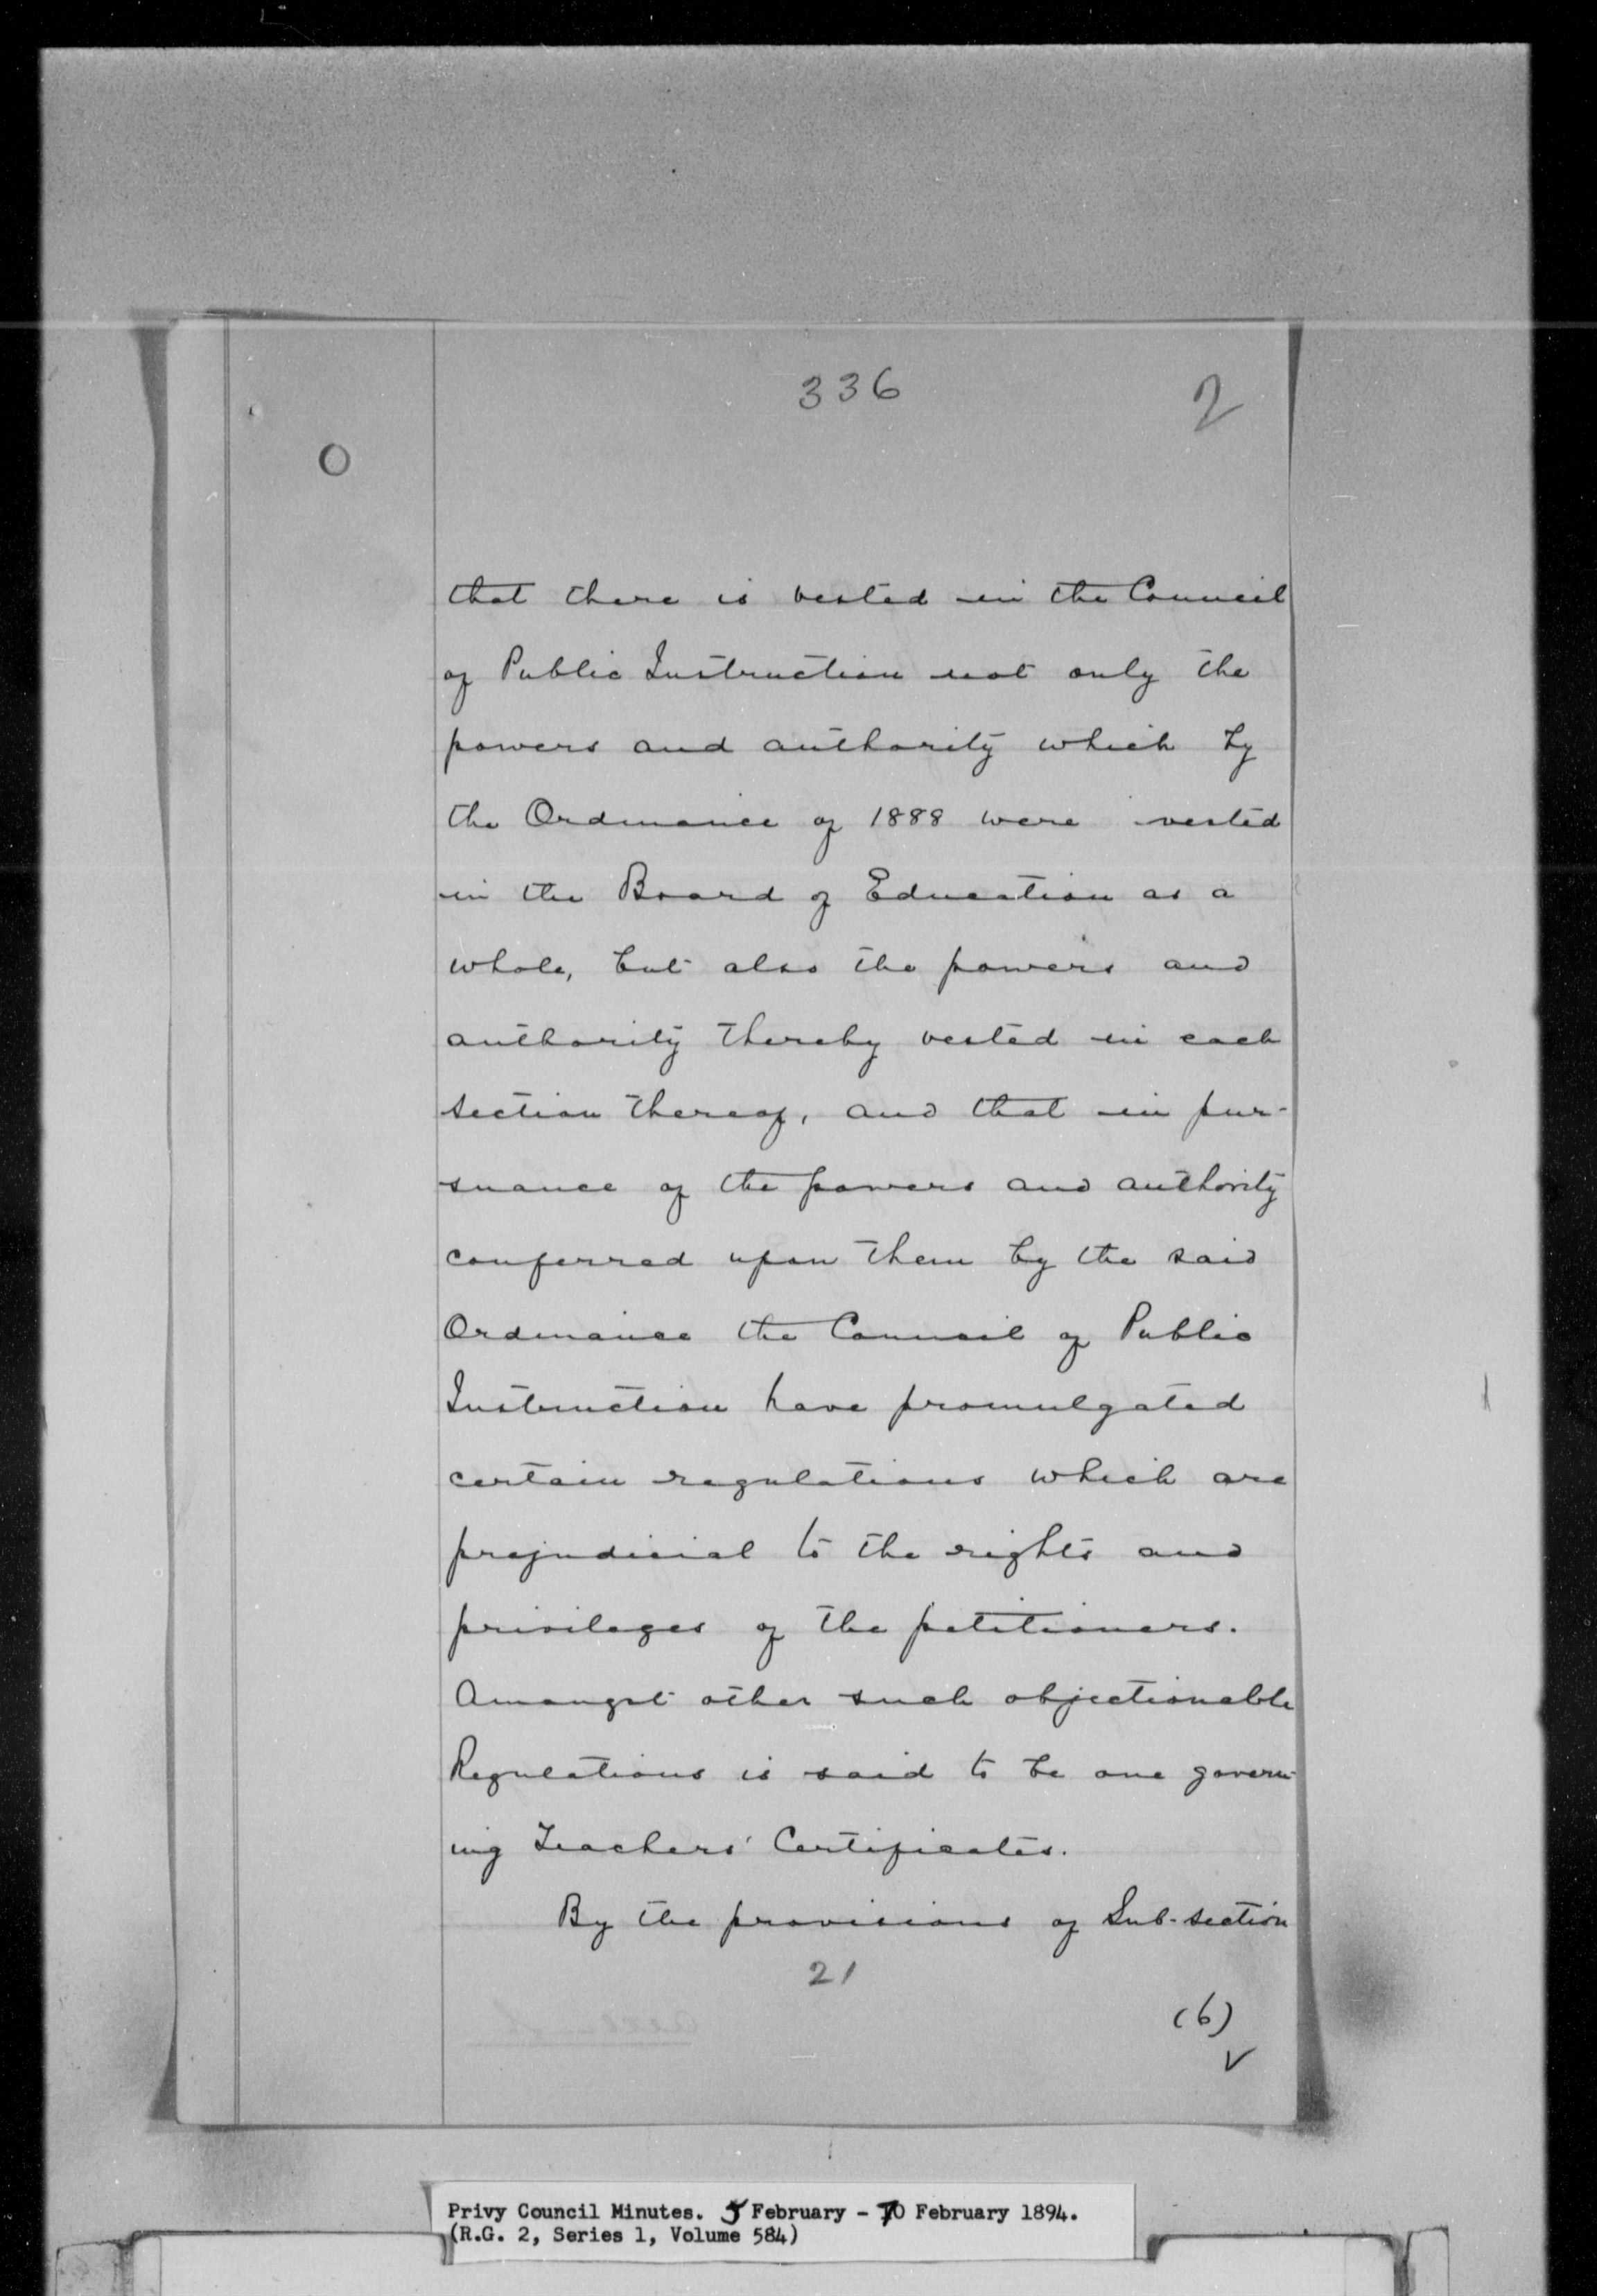 336
2
that there is vested in the Council
of Public Instruction not only the
powers and authority which by
the Ordinance of 1888 were vested
in the Board of Education as a
whole, but also the powers and
authority thereby vested in each
section thereof, and that in pur-
suance of the powers and authority
conferred upon them by the said
Ordinance the Council of Public
Instruction have promulgated
certain regulations which are
prejudicial to the rights and
privileges of the petitioners.
Amongst other such objectionable
Regulations is said to be one govern-
ing Teachers' Certificates.
By the provisions of Sub-section
21
(6)
Privy Council Minutes. 5 February - 10 February 1894.
(R.G. 2, Series 1, Volume 584)